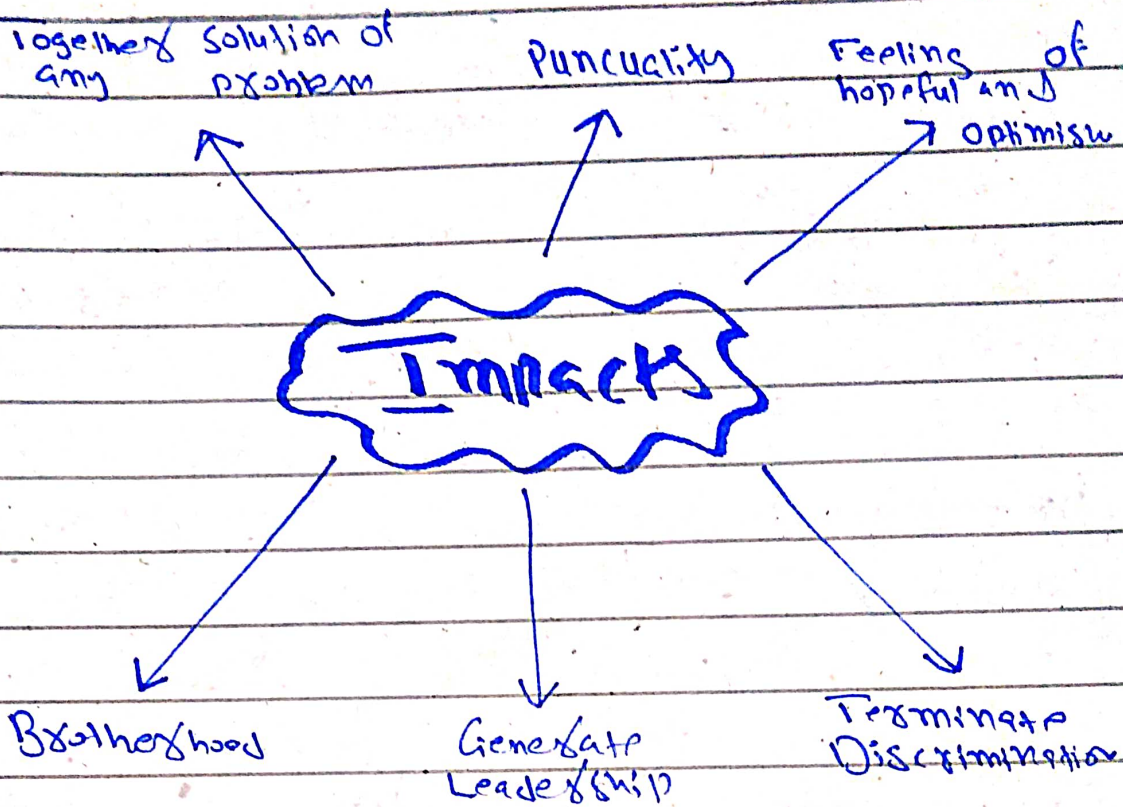 Together solution of
any problem
Puncuality
Feeling of
hopeful and
optimism
Impacts
Brotherhood
Generate
Leadership
Terminate
Discrimination